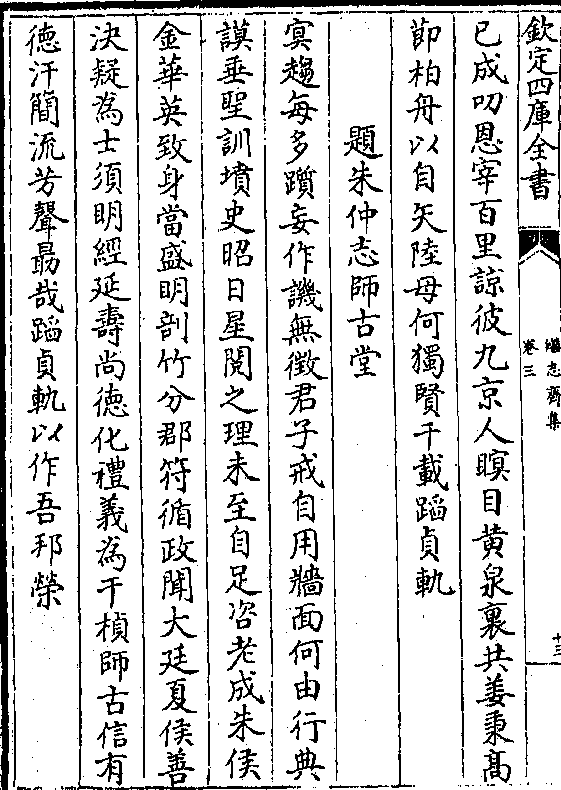 欽定四庫全書
繼志齋集
卷三
十三
已成叨恩宰百里諒彼九京人瞑目黄泉裏共姜秉高
節柏舟以自矢陸母何獨賢千載蹈貞軌
題朱仲志師古堂
冥趨每多躓妄作譏無徵君子戒自用牆面何由行典
謨垂聖訓墳史昭日星閱之理未至自足咨老成朱侯
金華英致身當盛明剖竹分郡符循政聞大廷夏侯善
決疑為士須明經延壽尚德化禮義為干楨師古信有
德汗簡流芳聲勗哉蹈貞軌以作吾邦榮